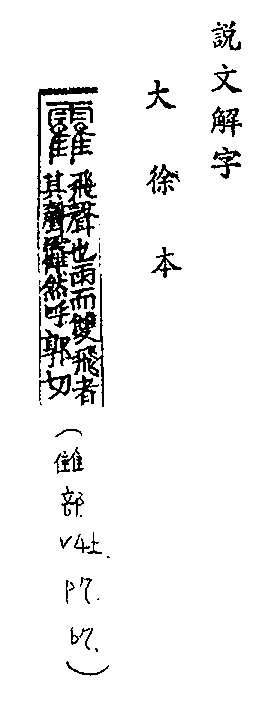 説文解字
大徐本
靃
飛聲也雨而雙飛者
其聲靃然呼郭切
(雔部
v4上.
p7.
b7.)